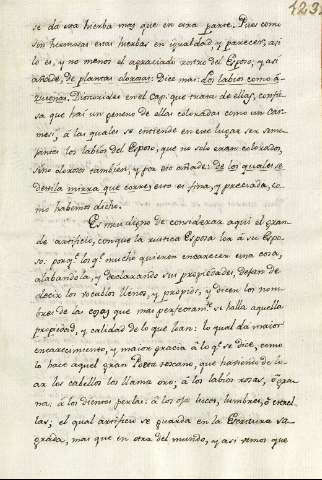 423.
se dá esta hierba mas que en otra parte. Pues como
son hermosas estas hierbas en igualdad, y parecer, asi
lo es, y no menos el agraciado rostro del Esposo, y asi
añade, de plantas olorosas: Dice mas: los labios como a-
zucenas. Dioscorides en el cap. que trata de ellas, confie-
sa que hai un genero de ellas coloradas como un car-
mesi, á las quales se entiende en este lugar ser seme-
jantes los labios del Esposo, que no solo eran colorados,
sino olorosos tambien, y por eso añade: de los quales se
destila mirra que corre, esto es fina, y preciada, co-
mo habemos dicho.
Es mui digno de considerar aqui el gran-
de artificio, con que la rustica Esposa loa á su Espo-
so: porqe. los qe. mucho quieren encarecer una cosa,
alabandola, y declarando sus propiedades, dejan de
decir los vocablos llenos, y propios, y dicen los nom-
bres de las cosas que mas perfectamte. se halla aquella
propiedad, y calidad de lo que loan: lo qual dá maior
encarecimiento, y maior gracia á lo qe. se dice, como
lo hace aquel gran Poeta toscano, que haviendo de lo-
ar los cabellos los llama oro; á los labios rosas, ó gra-
na: á los dientes perlas: á los ojos luces, lumbres, ó estre-
llas; el qual artificio se guarda en la Escritura sa-
grada, mas que en otra del mundo, y asi vemos que